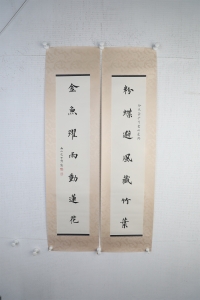 粉蝶避風藏竹葉
金魚躍雨動蓮花